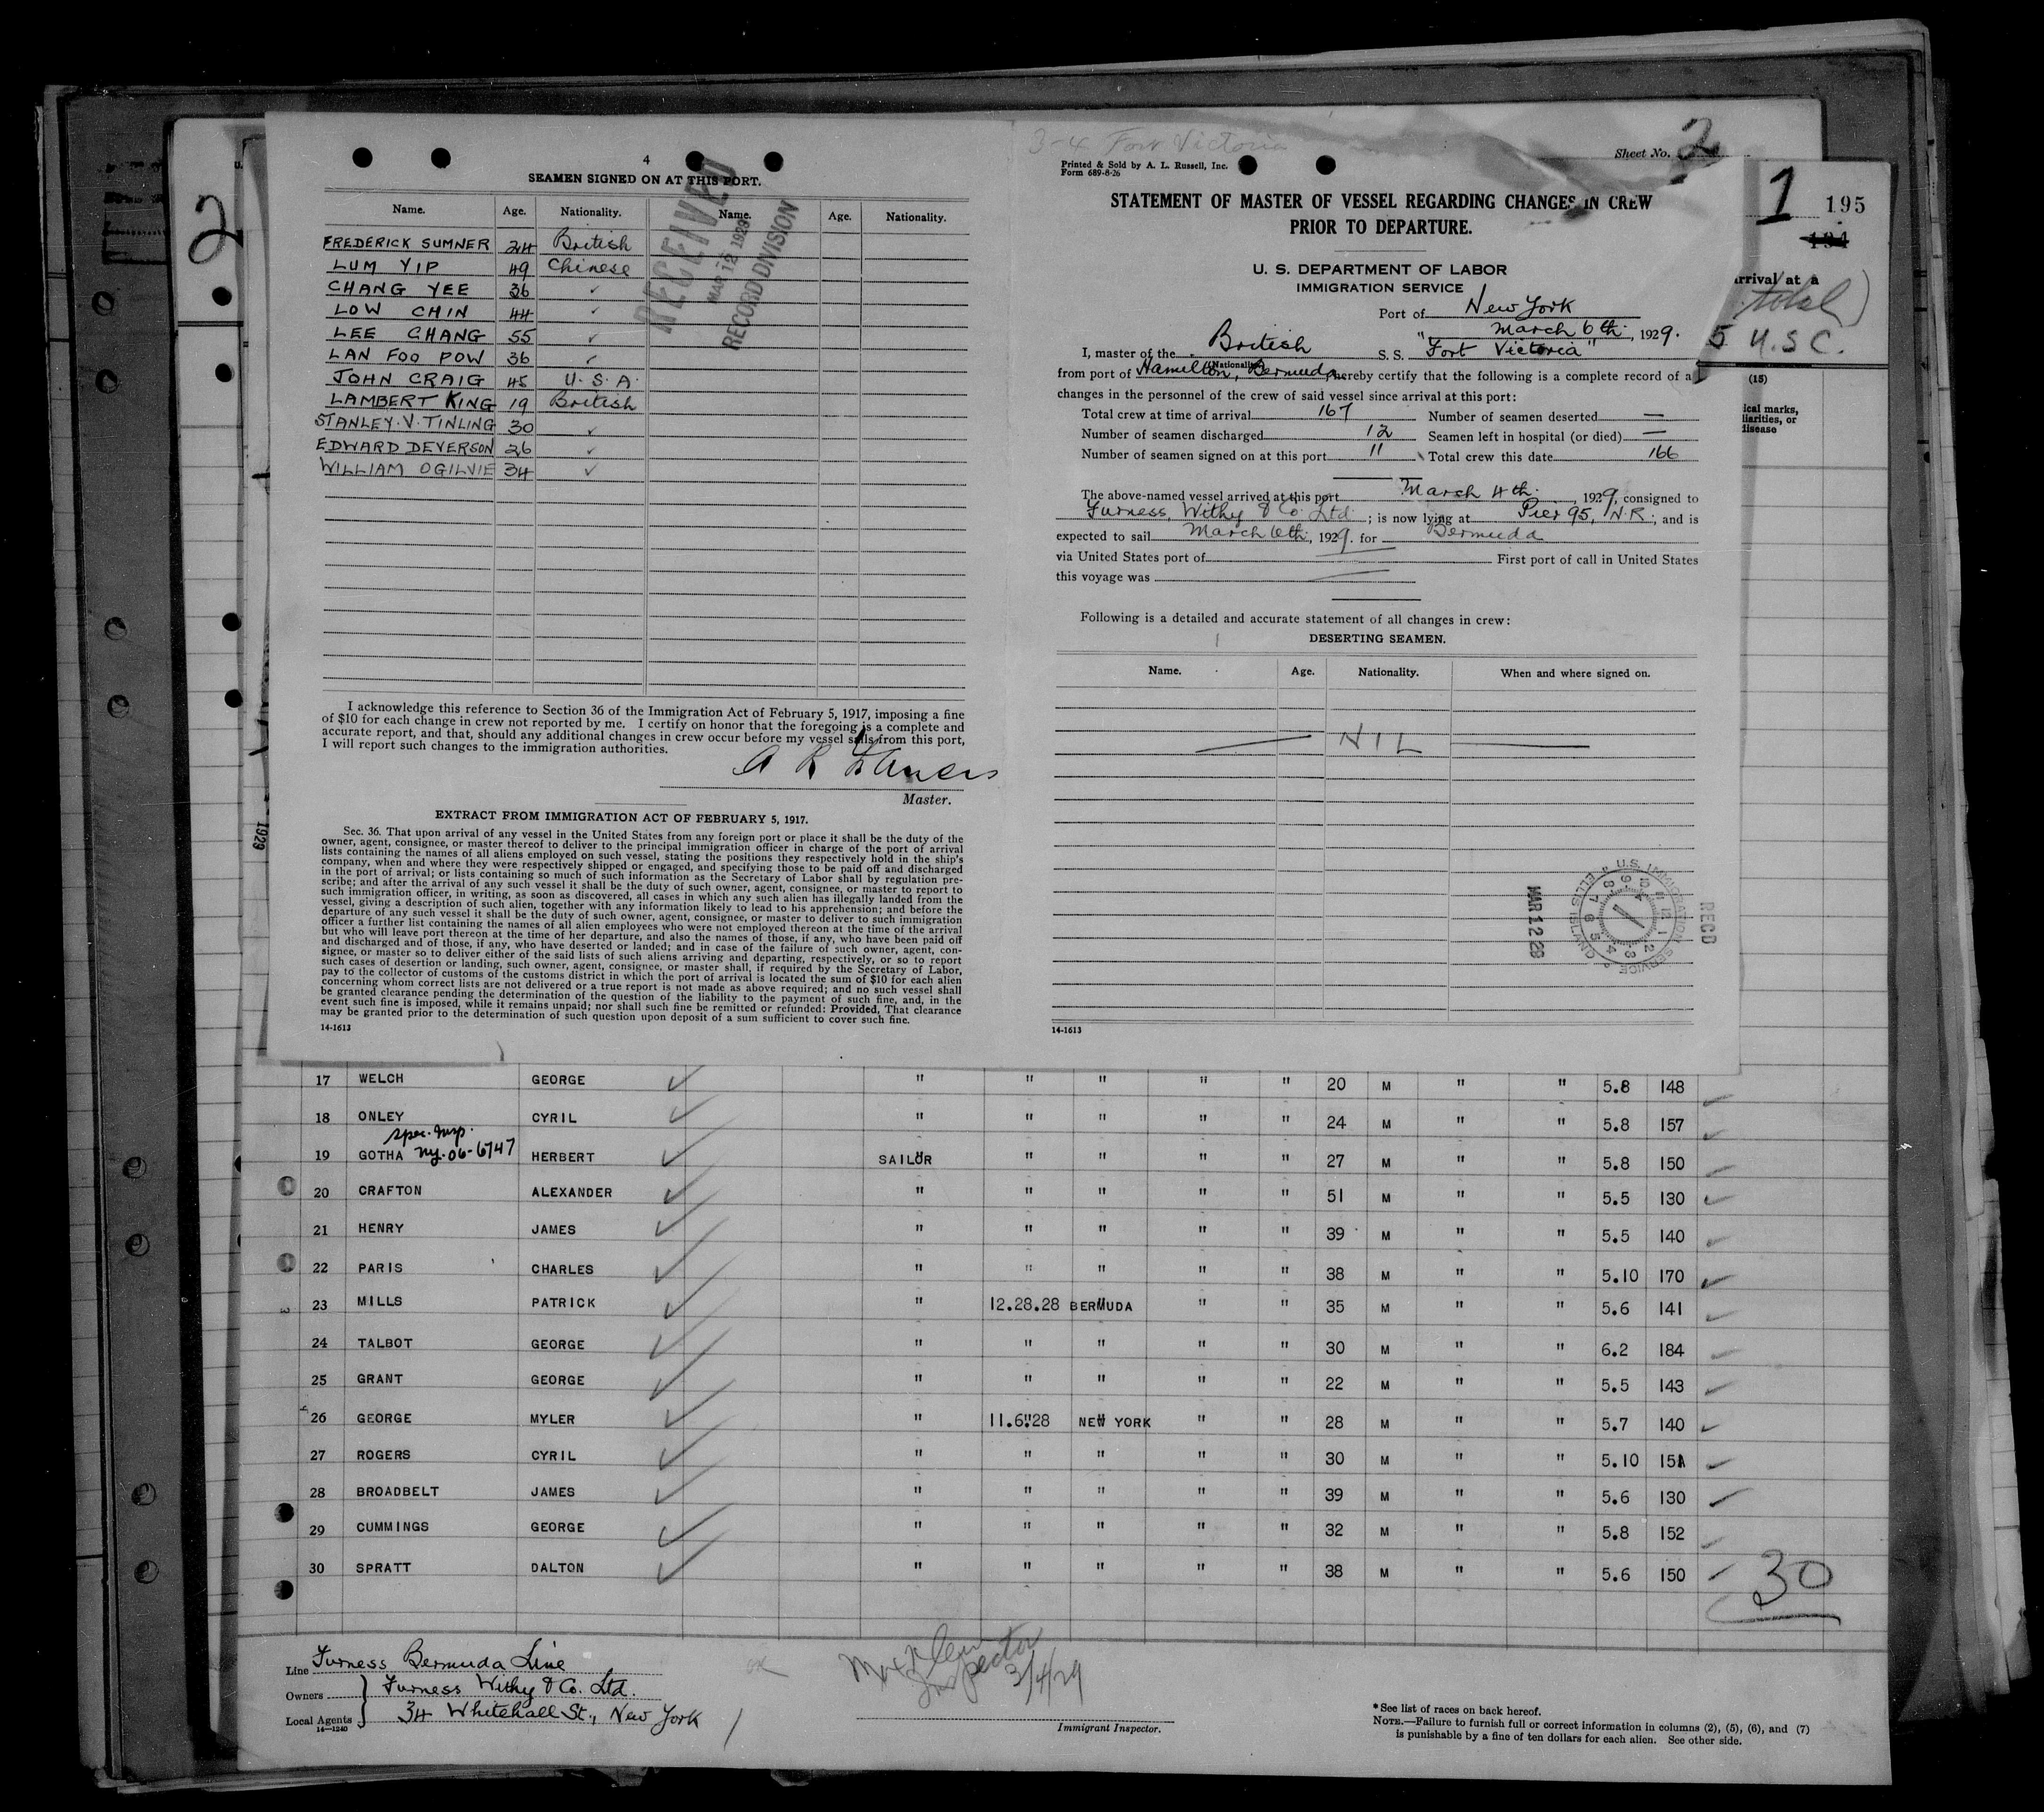 2
4
SEAMEN SIGNED ON AT THIS PORT.
Name. Age. Nationality. Name. Age. Nationality.
FREDERICK SUMNER 24 British
LUM YIP 49 Chinese
CHANG YEE 36 ✓
LOW CHIN 44 ✓
LEE CHANG 55 ✓
LAN FOO POW 36 ✓
JOHN CRAIG 45 U.S.A.
LAMBERT KING 19 British
STANLEY.V.TINLING 30 ✓
EDWARD DEVERSON 26 ✓
WILLIAM OGILVIE 34 ✓
RECEIVED
MAR 12 1929
RECORD DIVISION
I acknowledge this reference to Section 36 of the Immigration Act of February 5, 1917, imposing a fine
of $10 for each change in crew not reported by me. I certify on honor that the foregoing is a complete and
accurate report, and that, should any additional changes in crew occur before my vessel sails from this port,
I will report such changes to the immigration authorities.
A R
Master.
EXTRACT FROM IMMIGRATION ACT OF FEBRUARY 5, 1917.
Sec. 36. That upon arrival of any vessel in the United States from any foreign port or place it shall be the duty of the
owner, agent, consignee, or master thereof to deliver to the principal immigration officer in charge of the port of arrival
lists containing the names of all aliens employed on such vessel, stating the positions they respectively hold in the ship's
company, when and where they were respectively shipped or engaged, and specifying those to be paid off and discharged
in the port of arrival; or lists containing so much of such information as the Secretary of Labor shall by regulation pre-
scribe; and after the arrival of any such vessel it shall be the duty of such owner, agent, consignee, or master to report to
such immigration officer, in writing, as soon as discovered, all cases in which any such alien has illegally landed from the
vessel, giving a description of such alien, together with any information likely to lead to his apprehension; and before the
departure of any such vessel it shall be the duty of such owner, agent, consignee, or master to deliver to such immigration
officer a further list containing the names of all alien employees who were not employed thereon at the time of the arrival
but who will leave port thereon at the time of her departure, and also the names of those, if any, who have been paid off
and discharged and of those, if any, who have deserted or landed; and in case of the failure of such owner, agent, con-
signee, or master so to deliver either of the said lists of such aliens arriving and departing, respectively, or so to report
such cases of desertion or landing, such owner, agent, consignee, or master shall, if required by the Secretary of Labor,
pay to the collector of customs of the customs district in which the port of arrival is located the sum of $10 for each alien
concerning whom correct lists are not delivered or a true report is not made as above required; and no such vessel shall
be granted clearance pending the determination of the question of the liability to the payment of such fine, and, in the
event such fine is imposed, while it remains unpaid; nor shall such fine be remitted or refunded: Provided, That clearance
may be granted prior to the determination of such question upon deposit of a sum sufficient to cover such fine.
14-1613
1929
3-4 Fort Victoria
Printed & Sold by A. L. Russell, Inc.
Form 689-8-26
Sheet No. 2
STATEMENT OF MASTER OF VESSEL REGARDING CHANGES IN CREW
PRIOR TO DEPARTURE.
U. S. DEPARTMENT OF LABOR
IMMIGRATION SERVICE
Port of New York
March 6th, 1929.
I, master of the British S. S. "Fort Victoria"
(Nationality)
from port of Hamilton, Bermuda, hereby certify that the following is a complete record of a
changes in the personnel of the crew of said vessel since arrival at this port:
Total crew at time of arrival 167 Number of seamen deserted —
Number of seamen discharged 12 Seamen left in hospital (or died) —
Number of seamen signed on at this port 11 Total crew this date 166
The above-named vessel arrived at this port March 4th, 1929, consigned to
Furness, Withy & Co. Ltd. ; is now lying at Pier 95, N.R., and is
expected to sail March 6th, 1929. for Bermuda
via United States port of — First port of call in United States
this voyage was —
Following is a detailed and accurate statement of all changes in crew:
DESERTING SEAMEN.
Name. Age. Nationality. When and where signed on.
— NIL —
MAR 12 29
U.S. IMMIGRATION SERVICE
ELLIS ISLAND
12 1 2 3 4 5 6 7 8 9 10 11
RECD
14-1613
1 195
134
arrival at a
total)
5 U.S C.
(15)
ical marks,
liarities, or
disease
17 WELCH GEORGE ✓ " " " " " 20 M " " 5.8 148 ✓
18 ONLEY CYRIL ✓ " " " " " 24 M " " 5.8 157 ✓
spec. insp.
19 GOTHA NY.06-6747 HERBERT ✓ SAILOR " " " " 27 M " " 5.8 150 ✓
20 CRAFTON ALEXANDER ✓ " " " " " 51 M " " 5.5 130 ✓
21 HENRY JAMES ✓ " " " " " 39 M " " 5.5 140 ✓
22 PARIS CHARLES ✓ " " " " " 38 M " " 5.10 170 ✓
23 MILLS PATRICK ✓ " 12.28.28 BERMUDA " " 35 M " " 5.6 141 ✓
24 TALBOT GEORGE ✓ " " " " " 30 M " " 6.2 184 ✓
25 GRANT GEORGE ✓ " " " " " 22 M " " 5.5 143 ✓
26 GEORGE MYLER ✓ " 11.6.28 NEW YORK " " 28 M " " 5.7 140 ✓
27 ROGERS CYRIL ✓ " " " " " 30 M " " 5.10 151 ✓
28 BROADBELT JAMES ✓ " " " " " 39 M " " 5.6 130 ✓
29 CUMMINGS GEORGE ✓ " " " " " 32 M " " 5.8 152 ✓
30 SPRATT DALTON ✓ " " " " " 38 M " " 5.6 150 ✓
30
Line Furness Bermuda Line
Owners Furness Withy & Co. Ltd.
Local Agents 34 Whitehall St., New York
14—1240
Inspector
3/4/29
Immigrant Inspector.
* See list of races on back hereof.
NOTE.—Failure to furnish full or correct information in columns (2), (5), (6), and (7)
is punishable by a fine of ten dollars for each alien. See other side.